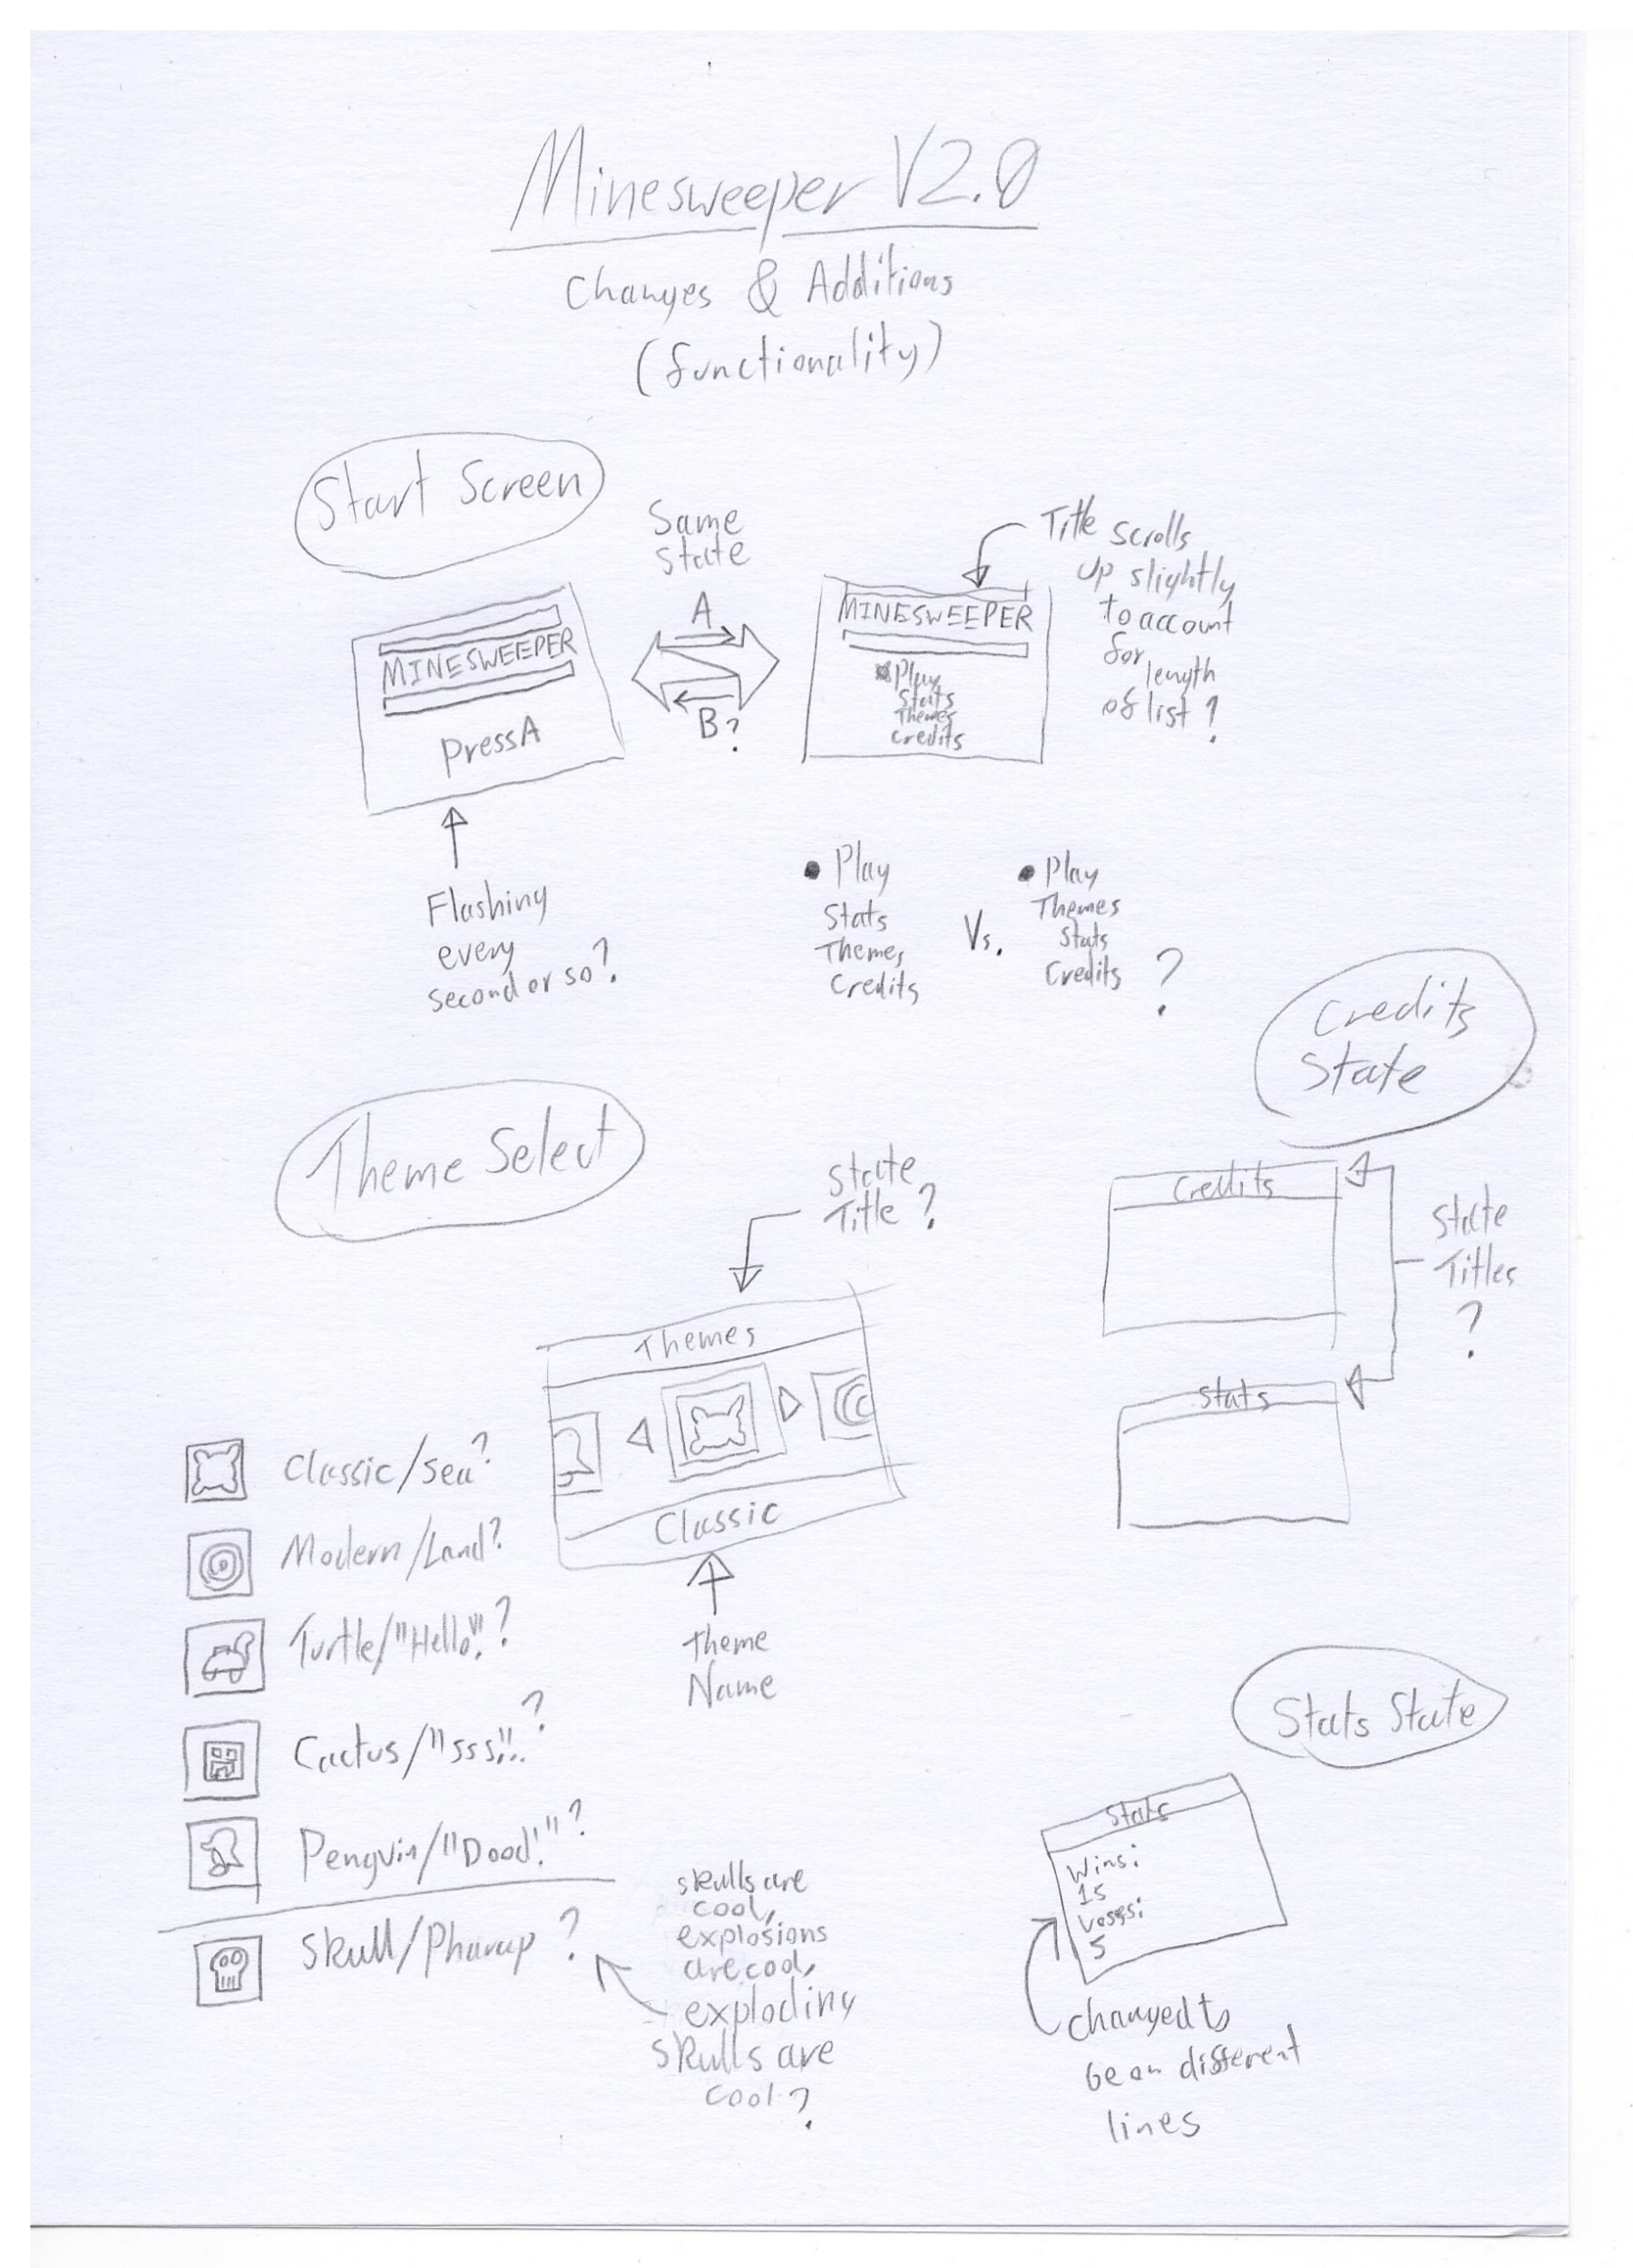 Minesweeper V2.0
Changes & Additions
(functionality)
Start Screen
Same
State
A
B?
MINESWEEPER
press A
MINESWEEPER
Play
Stats
Themes
Credits
Title scrolls
up slightly
to account
for length
of list?
Flashing
every
second or so?
• Play
Stats
Themes
Credits
Vs.
• Play
Themes
Stats
Credits
?
Credits
State
Theme Select
State
Title?
Themes
Classic
Theme
Name
Credits
Stats
State
Titles
?
Classic/Sea?
Modern/Land?
Turtle/"Hello!"?
Cactus/"sss..."?
Penguin/"Dood!"?
Skull/Pharap?
skulls are
cool,
explosions
are cool,
exploding
skulls are
cool?
Stats State
Stats
Wins:
15
5
changed to
be on different
lines